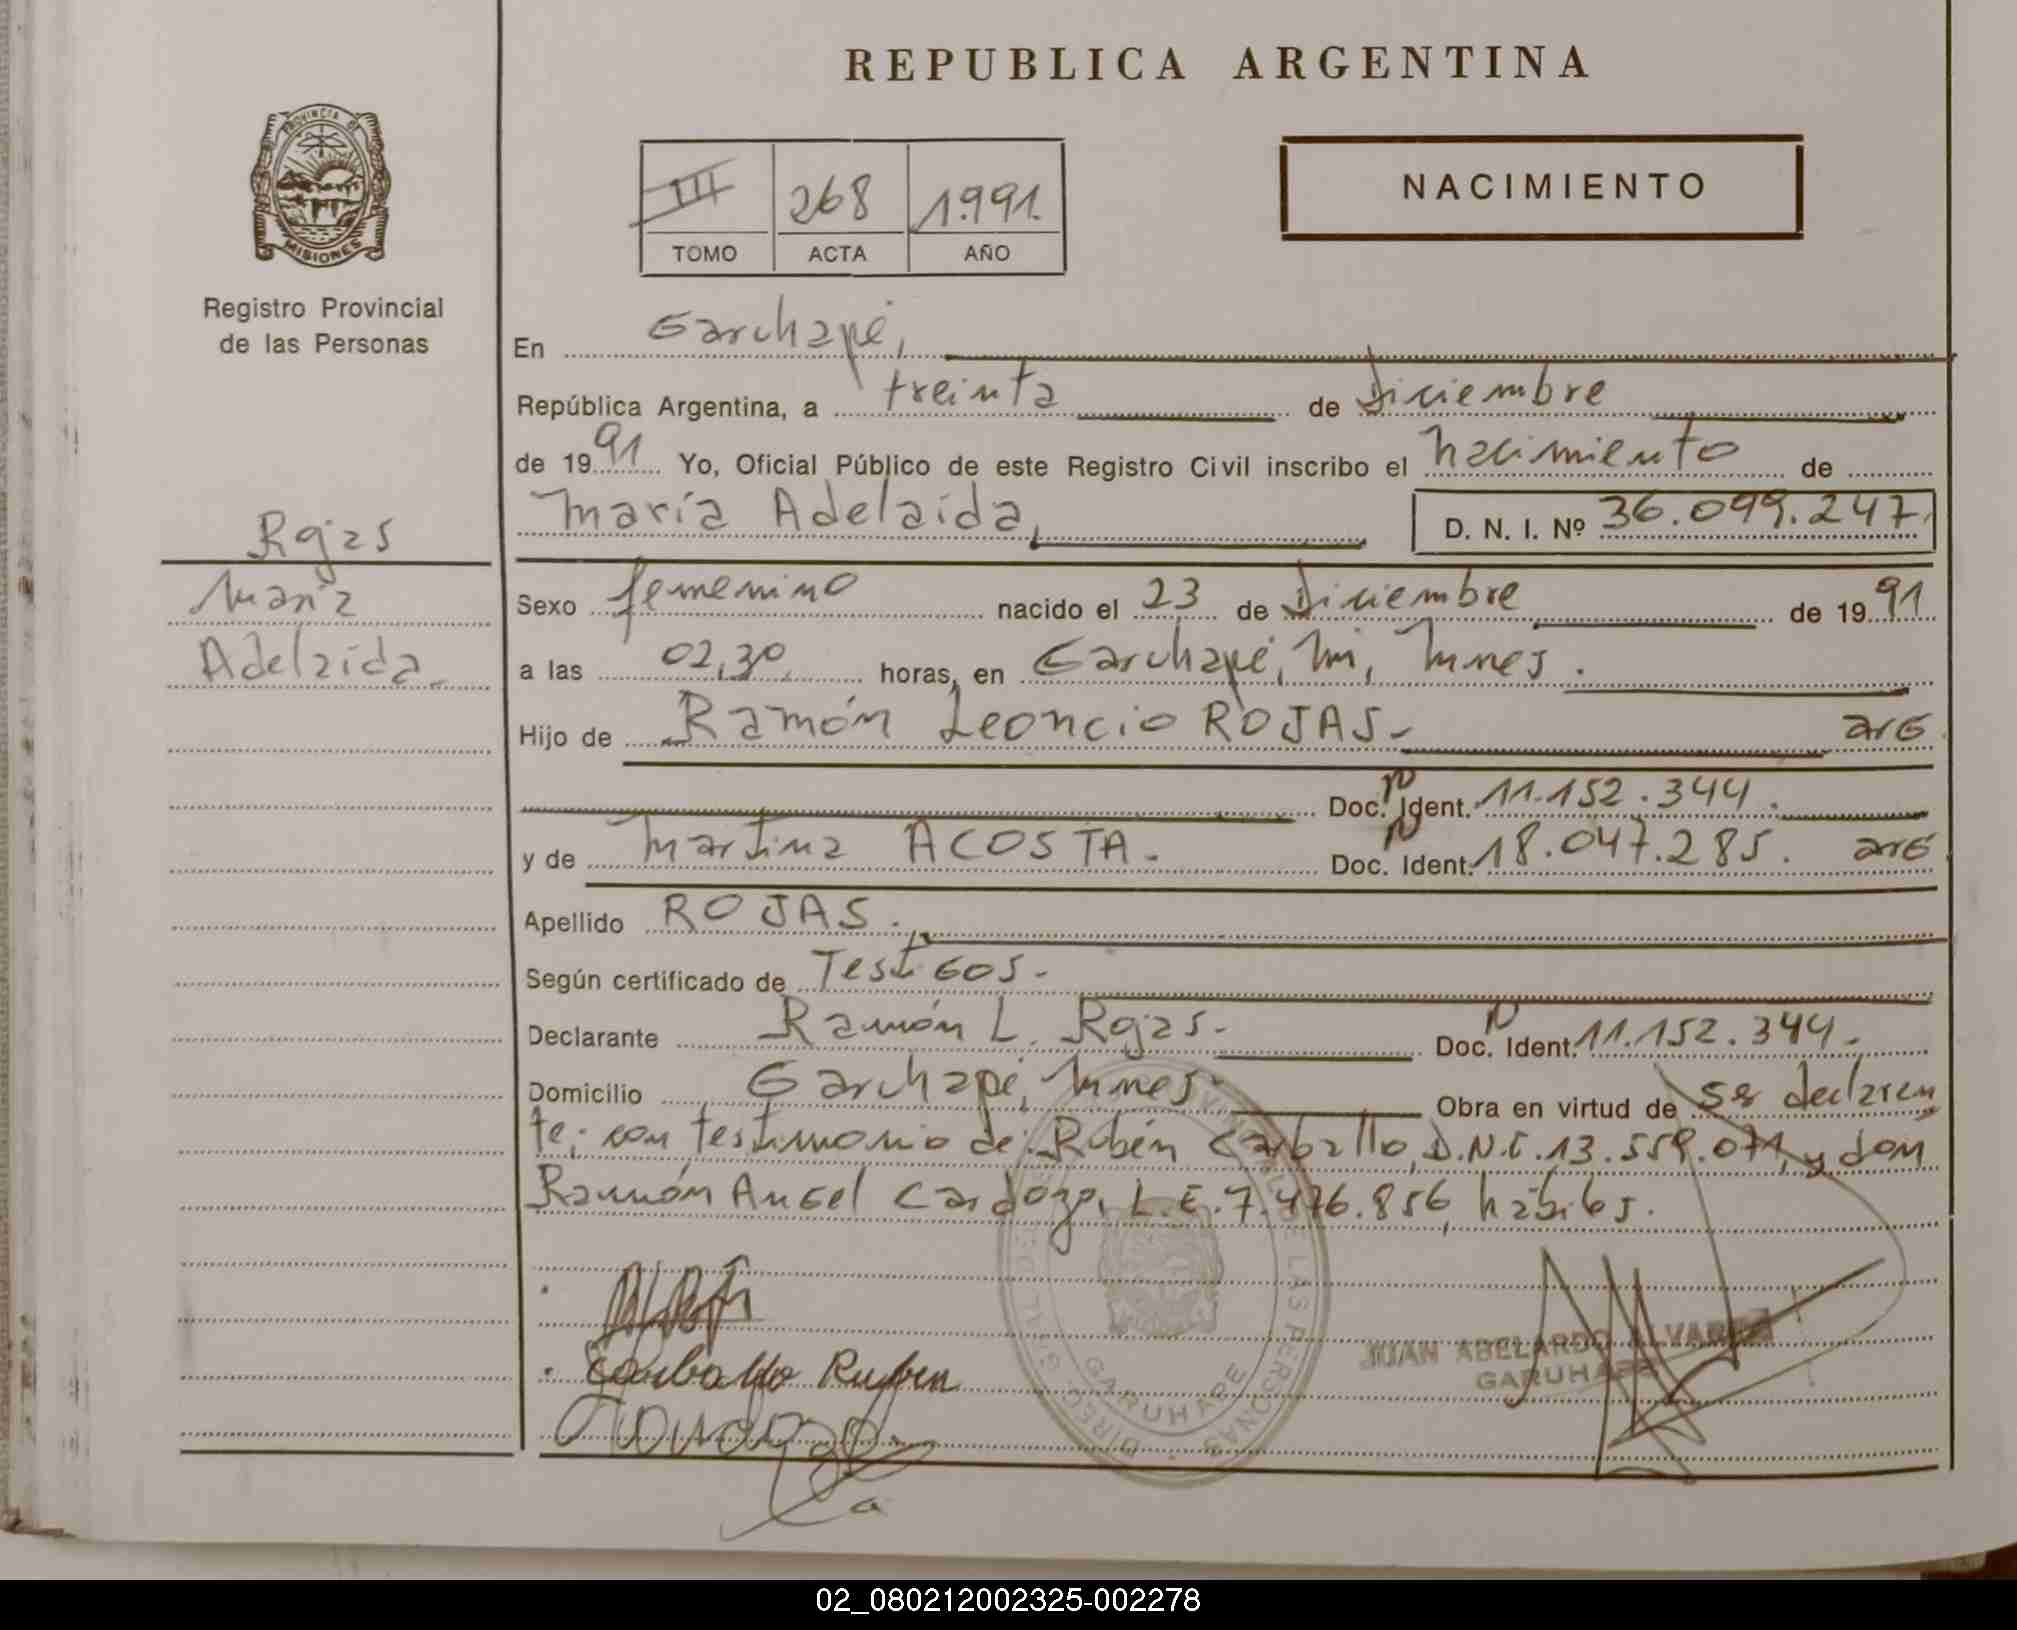 REPUBLICA ARGENTINA
PROVINCIA DE
MISIONES
Registro Provincial
de las Personas
III 268 1.991.
TOMO ACTA AÑO
NACIMIENTO
En Garuhapé,
República Argentina, a treinta de Diciembre
de 1991 Yo, Oficial Público de este Registro Civil inscribo el nacimiento de
María Adelaida, D. N. I. Nº 36.099.247.
Rojas
María
Adelaida.
Sexo femenino nacido el 23 de Diciembre de 1991
a las 02,30 horas, en Garuhapé, Mi, Mnes.
Hijo de Ramón Leoncio ROJAS- arG.
Doc. Ident. 11.152.344.
y de Martina ACOSTA. Doc. Ident. 18.047.285. arG
Apellido ROJAS.
Según certificado de TestiGos.
Declarante Ramón L. Rojas. Doc. Ident. 11.152.344.
Domicilio Garuhapé, Mnes. Obra en virtud de ser declaren
te; con testimonio de: Rubén Carballo, D.N.I. 13.559.071, y don
Ramón AnGel Cardozo, L.E. 7.476.856, hábiles.
Carballo Ruben
JUAN ABELARDO ALVAREZ
GARUHAPE
DIREC. GRAL. DEL REG. PROVINCIAL DE LAS PERSONAS
GARUHAPE
02_080212002325-002278